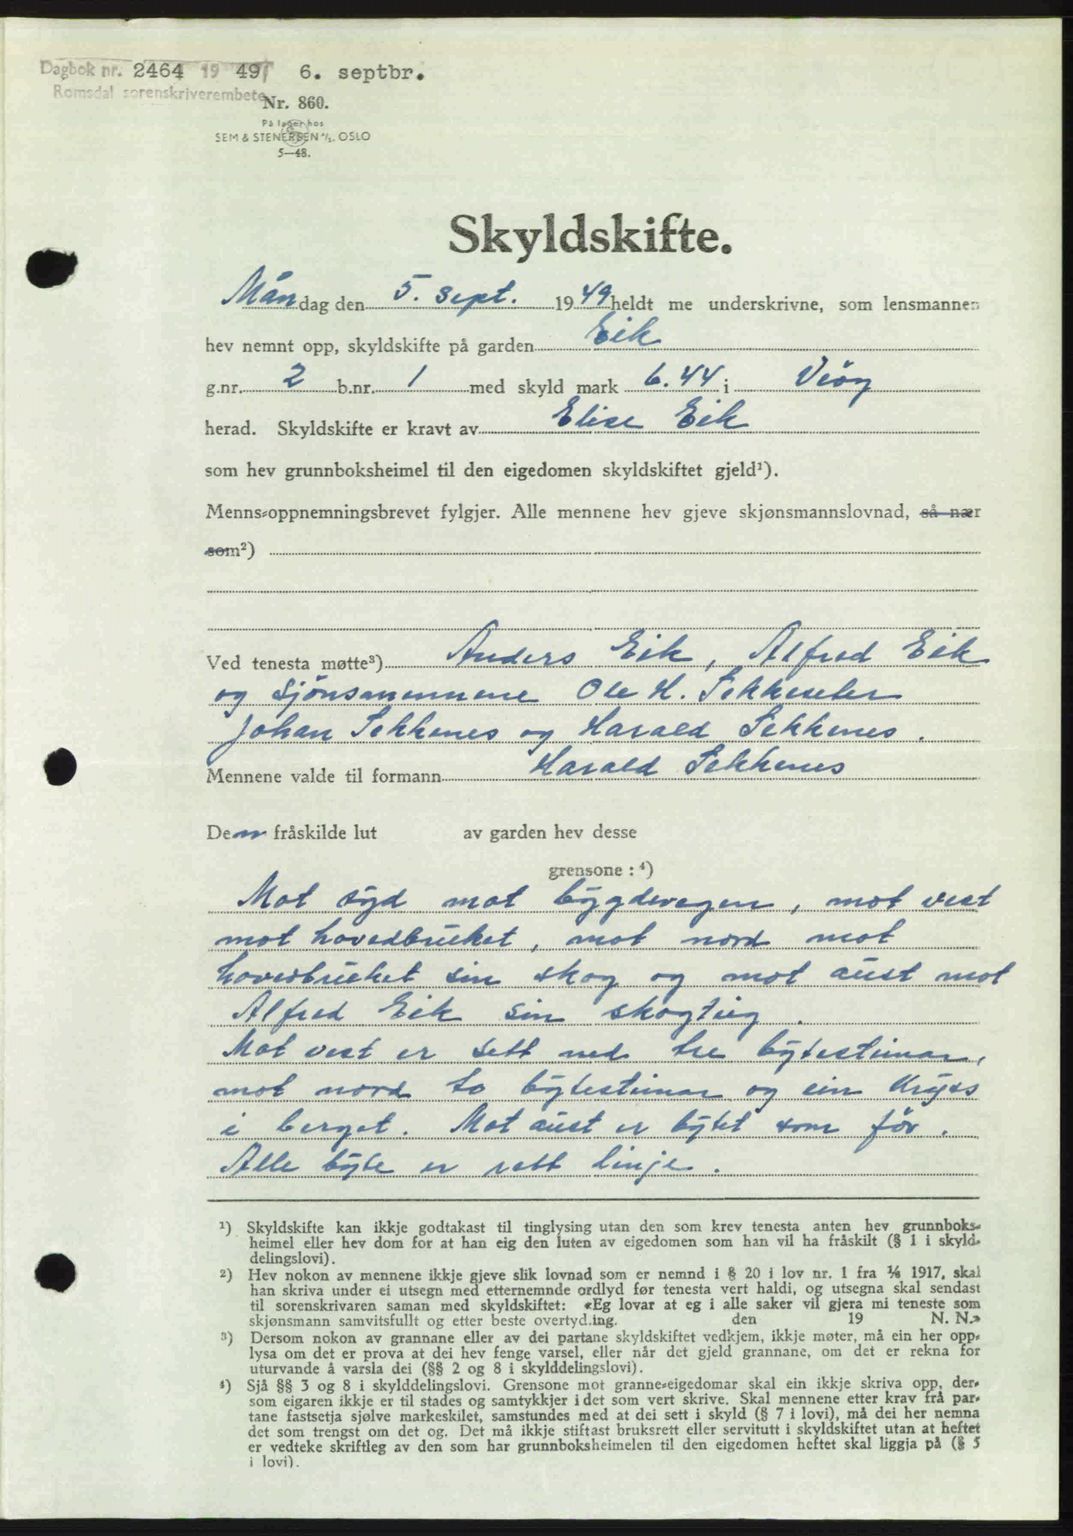 Dagbok nr. 2464 19 49 6. septbr.
Romsdal sorenskriverembete
Nr. 860.
På lager hos
SEM & STENERSEN A/S. OSLO
5—48.
Skyldskifte.
Måndag den 5. sept. 1949 heldt me underskrivne, som lensmannen
hev nemnt opp, skyldskifte på garden Eik
g.nr. 2 b.nr. 1 med skyld mark 6.44 i Veöy
herad. Skyldskifte er kravt av Elise Eik
som hev grunnboksheimel til den eigedomen skyldskiftet gjeld¹).
Menns-oppnemningsbrevet fylgjer. Alle mennene hev gjeve skjønsmannslovnad, så nær
som²)
Ved tenesta møtte³) Anders Eik, Alfred Eik
og Sjönsmennene Ole H. Sekkeseter
Johan Sekkenes og Harald Sekkenes.
Mennene valde til formann Harald Sekkenes
Den fråskilde lut av garden hev desse
grensone : ⁴)
Mot syd mot bygdevegen, mot vest
mot hovedbruket, mot nord mot
hovedbruket sin skog og mot aust mot
Alfred Eik sin skogteig.
Mot vest er sett ned tre bytesteinar,
mot nord to bytesteinar og ein kryss
i berget. Mot aust er bytet som för.
Alle byte er rett linje.
¹) Skyldskifte kan ikkje godtakast til tinglysing utan den som krev tenesta anten hev grunnboks-
heimel eller hev dom for at han eig den luten av eigedomen som han vil ha fråskilt (§ 1 i skyld-
delingslovi).
²) Hev nokon av mennene ikkje gjeve slik lovnad som er nemnd i § 20 i lov nr. 1 fra 1/6 1917, skal
han skriva under ei utsegn med etternemnde ordlyd før tenesta vert haldi, og utsegna skal sendast
til sorenskrivaren saman med skyldskiftet: «Eg lovar at eg i alle saker vil gjera mi teneste som
skjønsmann samvitsfullt og etter beste overtyd.ing. den 19 N. N.»
³) Dersom nokon av grannane eller av dei partane skyldskiftet vedkjem, ikkje møter, må ein her opp-
lysa om det er prova at dei hev fenge varsel, eller når det gjeld grannane, om det er rekna for
uturvande å varsla dei (§§ 2 og 8 i skylddelingslovi).
⁴) Sjå §§ 3 og 8 i skylddelingslovi. Grensone mot granne-eigedomar skal ein ikkje skriva opp, der-
som eigaren ikkje er til stades og samtykkjer i det som vert skrive. Skal mennene etter krav frå par-
tane fastsetja sjølve markeskilet, samstundes med at dei sett i skyld (§ 7 i lovi), må dei her nemna
det som trengst om det og. Det må ikkje stiftast bruksrett eller servitutt i skyldskiftet utan at heftet
er vedteke skriftleg av den som har grunnboksheimelen til den eigedomen heftet skal liggja på (§ 5
i lovi).